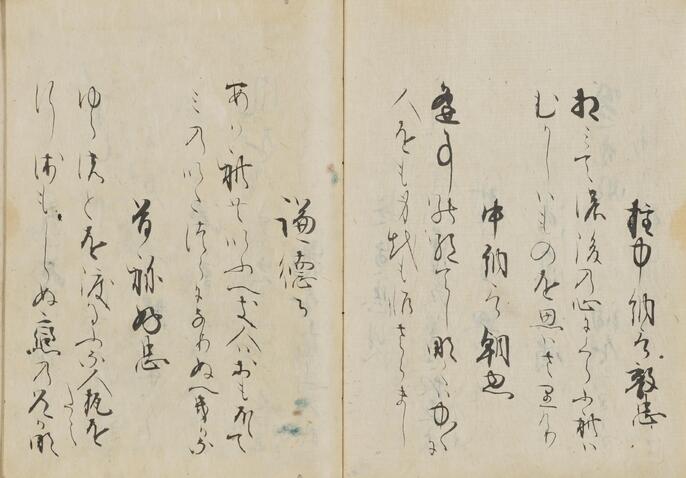 権中納言敦忠
相みての後の心にくらふれは
むかしはものを思はさりけり
中納言朝忠
逢事の絶てしなくは中々に
人をも身をも恨さらまし
謙徳公
あはれともいふへき人はおもほえて
みのいたつらになりぬへきかな
曽祢好忠
ゆらのとを渡るふな人梶をたえ
行衛もしらぬ恋の道かな